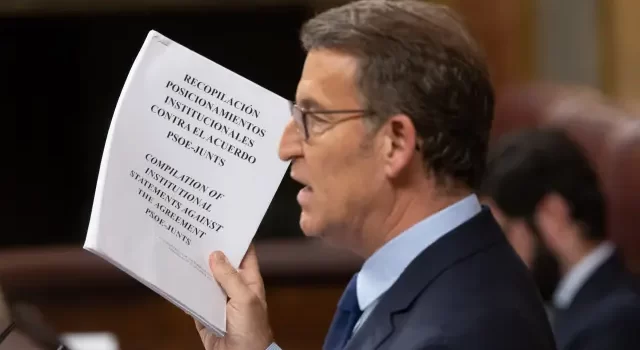 RECOPILACIÓN
POSICIONAMIENTOS
INSTITUCIONALES
CONTRA EL ACUERDO
PSOE-JUNTS
COMPILATION OF
INSTITUTIONAL
STATEMENTS AGAINST
THE AGREEMENT
PSOE-JUNTS